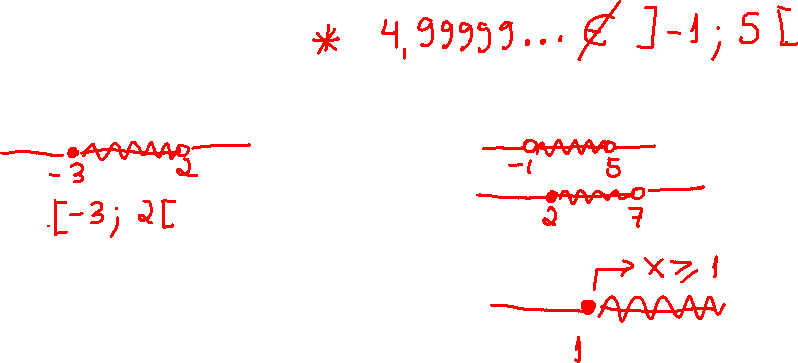 * 4,99999... ∉ ]-1; 5 [
-3 2
[-3; 2[
-1 5
2 7
x ⩾ 1
1